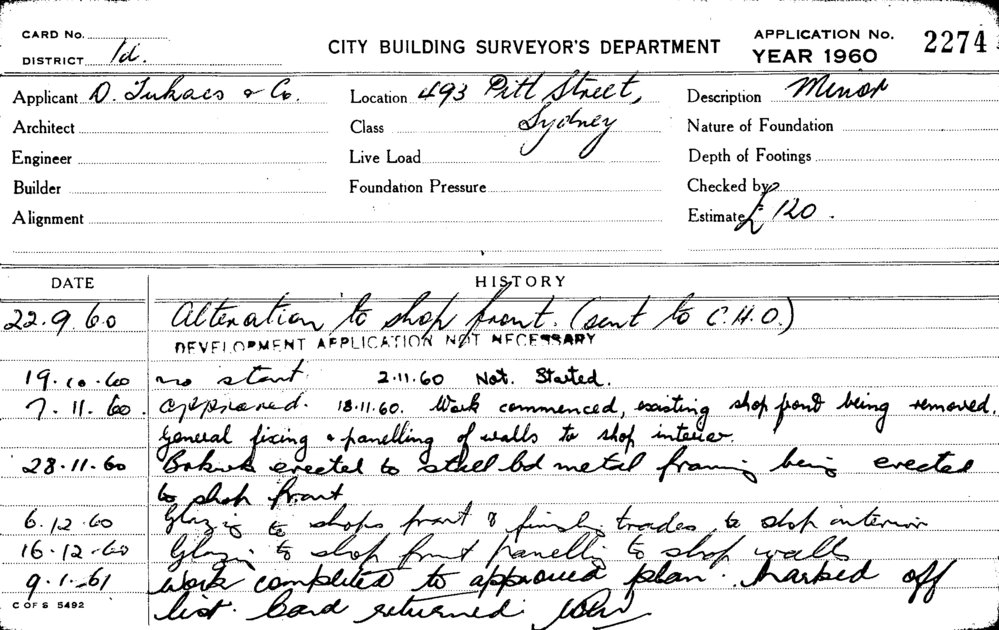 CARD No.
DISTRICT 1d.
CITY BUILDING SURVEYOR'S DEPARTMENT
APPLICATION No. 2274
YEAR 1960
Applicant D. Lukacs & Co.
Location 493 Pitt Street,
Sydney
Description Minor
Architect
Class
Nature of Foundation
Engineer
Live Load
Depth of Footings
Builder
Foundation Pressure
Checked by
Alignment
Estimate £120.
DATE HISTORY
22.9.60 Alteration to shop front. (sent to C.H.O.)
DEVELOPMENT APPLICATION NOT NECESSARY
19.10.60 no start. 2.11.60 Not. Started.
7.11.60. approved. 18.11.60. Work commenced, existing shop front being removed.
General fixing & panelling of walls to shop interior.
28.11.60 erected to steel metal framing being erected
to shop front
6.12.60 Glazing to shops front & finishing trades to shop interior
16.12.60 Glazing to shop front panelling to shop walls
9.1.61 Work completed to approved plan. Marked off
list. Card returned.
C OF S 5492